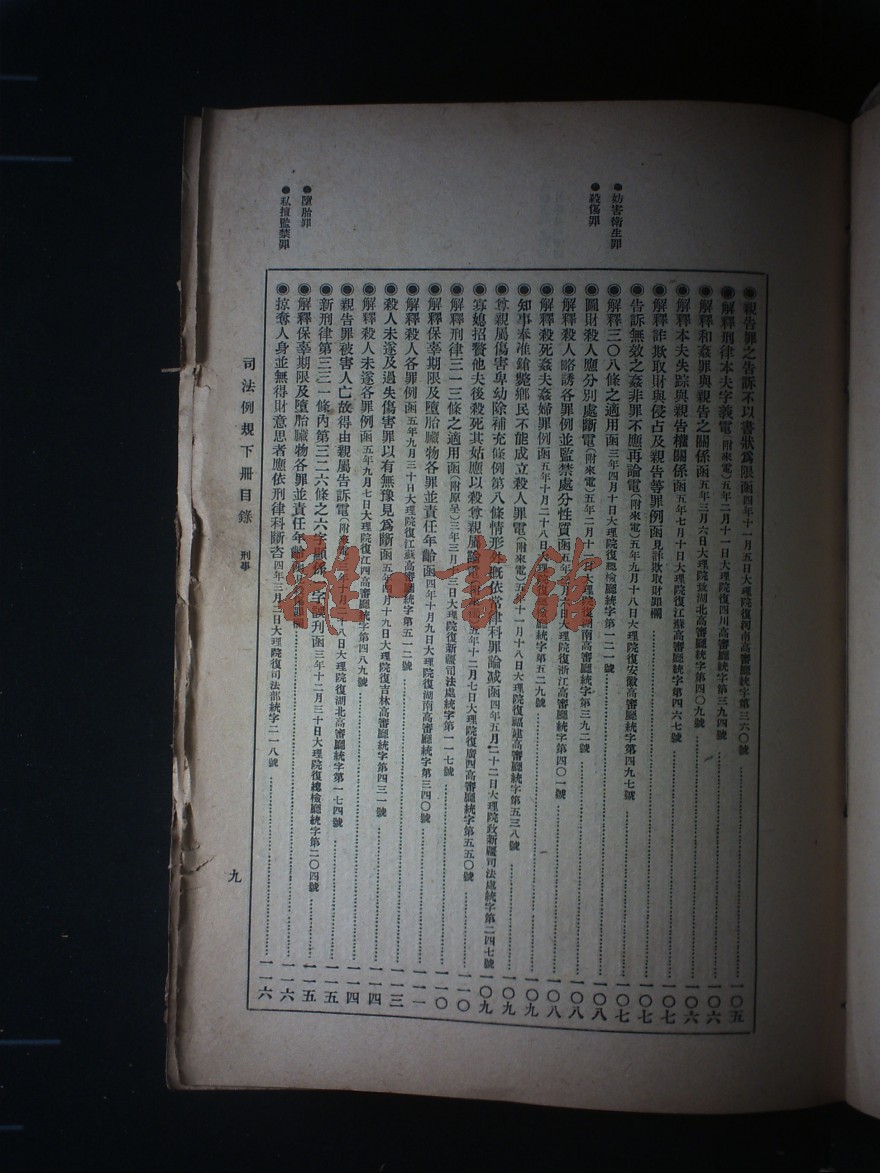 ●妨害衛生罪
●殺傷罪
●墮胎罪
●私擅監禁罪
◉親告罪之告訴不以書狀爲限函四年十一月五日大理院復河南高審廳統字第三六〇號……一〇五
◉解釋刑律本夫字義電(附來電)五年二月十一日大理院復四川高審廳統字第三九四號……一〇六
◉解釋和姦罪與親告之關係函五年三月六日大理院致湖北高審廳統字第四〇九號……一〇六
◉解釋本夫失踪與親告權關係函五年七月十日大理院復江蘇高審廳統字第四六七號……一〇七
◉解釋詐欺取財與侵占及親告等罪例函見詐欺取財罪欄……一〇七
◉告訴無效之姦非罪不應再論電(附來電)五年九月十八日大理院復安徽高審廳統字第四九七號……一〇七
◉解釋三〇八條之適用函三年四月十日大理院復總檢廳統字第一二一號……一〇八
◉圖財殺人應分別處斷電(附來電)五年二月十二日大理院復河南高審廳統字第三九二號……一〇八
◉解釋殺人略誘各罪例並監禁處分性質函五年 月六日大理院復浙江高審廳統字第四〇一號……一〇八
◉解釋殺死姦夫姦婦罪例函五年十月二十八日大理院復總檢廳統字第五二九號……一〇九
◉知事奉准鎗斃鄉民不能成立殺人罪電(附來電)五年十一月十八日大理院復福建高審廳統字第五三八號……一〇九
◉尊親屬傷害卑幼除補充條例第八條情形外概依常律科罪論减函四年五月二十二日大理院致新疆司法處統字第二四七號一〇九
◉寡媳招贅他夫後殺死其姑應以殺尊親屬論電(附來電)五年十二月七日大理院復廣西高審廳統字第五五〇號……一一〇
◉解釋刑律三一三條之適用函(附原呈)三年三月 三日大理院復新疆司法處統字第一一七號……一一〇
◉解釋保辜期限及墮胎臟物各罪並責任年齡函四年十月九日大理院復湖南高審廳統字第三四〇號……一一一
◉解釋殺人各罪例函五年九月三十日大理院復江蘇高審廳統字第五一二號……一一三
◉殺人未遂及過失傷害罪以有無豫見爲斷函五年四月十九日大理院復吉林高審廳統字第四三一號……一一四
◉解釋殺人未遂各罪例函五年九月七日大理院復江西高審廳統字第四八九號……一一四
◉親告罪被害人亡故得由親屬告訴電(附來電)三年十月二十八日大理院復湖北高審廳統字第一七四號……一一五
◉新刑律第三三一條內第三二六條之六字顯係 字誤刊函三年十二月三十日大理院復總檢廳統字第二〇四號……一一五
◉解釋保辜期限及墮胎臟物各罪並責任年齡函見殺傷罪欄……一一六
◉掠奪人身並無得財意思者應依刑律科斷咨四年三月二日大理院復司法部統字二一八號……一一六
司法例規下冊目錄 刑事
九
雜·書館